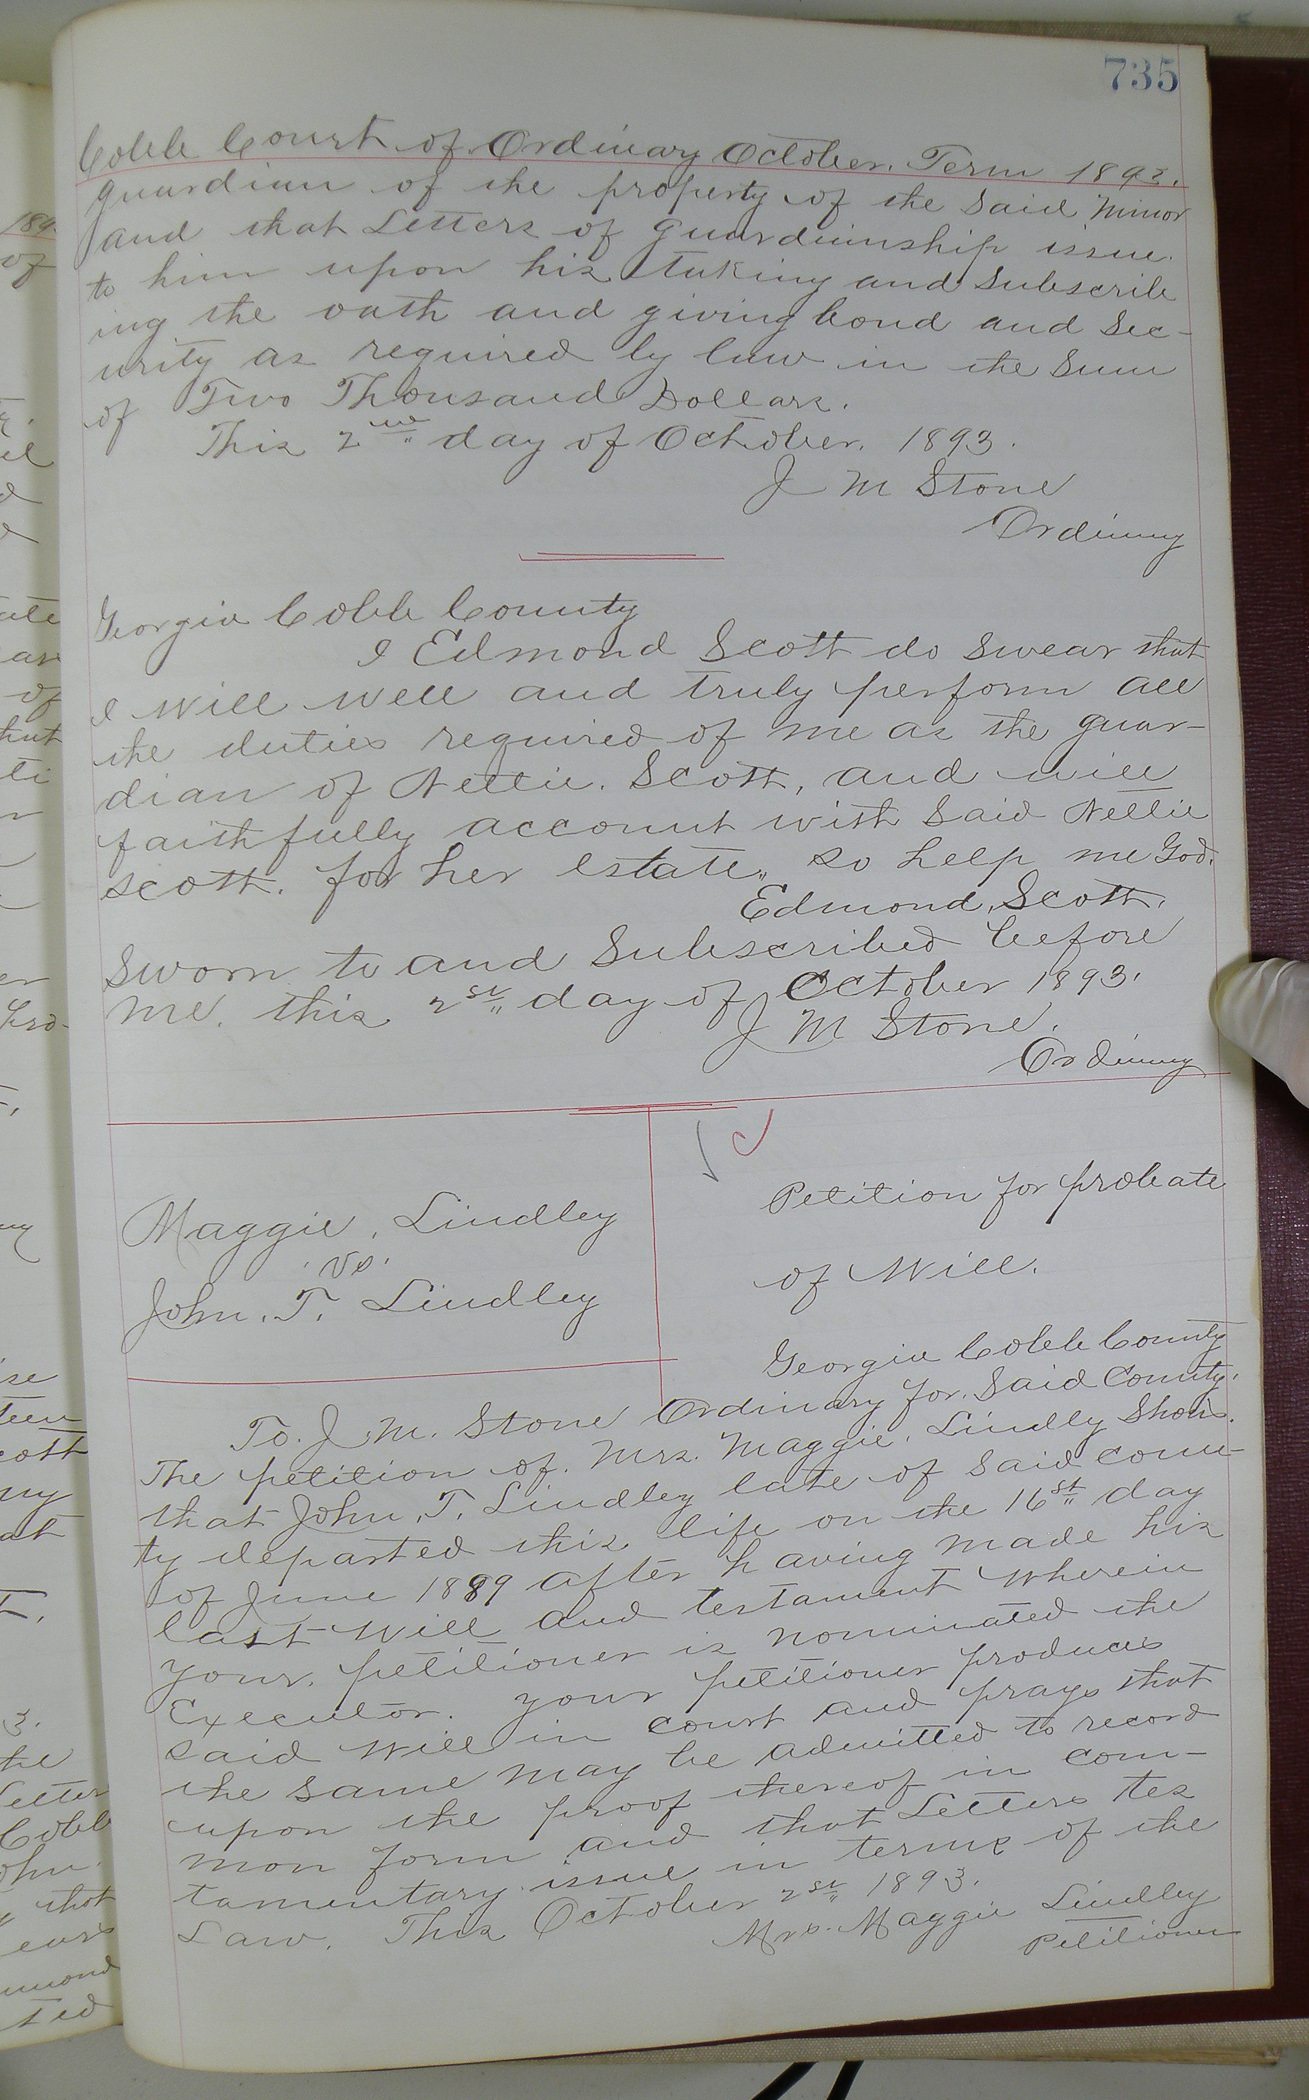 735
Cobb Court of Ordinary October. Term 1893.
guardian of the property of the Said Minor
and that Letters of guardianship issue.
to him upon his taking and Subscrib
ing the oath and giving bond and Sec-
urity as required by law in the Sum
of Two Thousand Dollars.
This 2nd day of October. 1893.
J M Stone
Ordinary
Georgia Cobb County
I Edmond Scott do Swear that
I will well and truly perform all
the duties required of me as the guar-
dian of Nettie. Scott, and will
faithfully account with Said Nettie
Scott. for her Estate,, So help me God.
Edmond. Scott.
Sworn to and Subscribed before
me, this 2st day of October 1893.
J M Stone.
Ordinary
Maggie. Lindley
vs.
John. T. Lindley
Petition for probate
of Will.
Georgia Cobb County
To. J. M. Stone Ordinary for. Said County.
The petition of. Mrs. Maggie. Lindly Shows.
that John. T. Lindley late of Said coun-
ty departed this life on the 16st day
of June 1889 after having made his
last Will and testament Wherein
your. petitioner is nominated the
Executor. your petitioner produces
Said Will in court and prays that
the Same may be admitted to record
upon the proof thereof in com-
mon form and that Letters tes
tamentary. issue in terms of the
Law. This October 2st 1893.
Mrs. Maggie Lindley
Petitioner